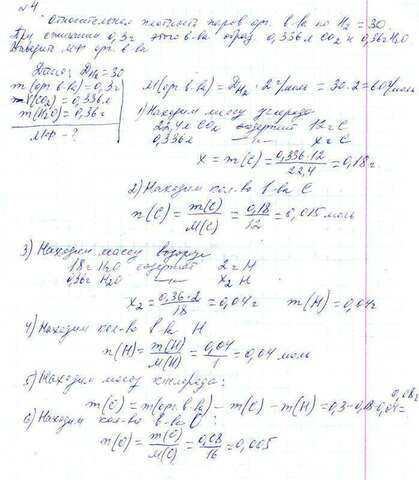 №4
Относительная плотность паров орг. в-ва по H₂ = 30
При сжигании 0,3г этого в-ва образ. 0,336л CO₂ и 0,36г H₂O
Найдите МФ орг. в-ва
Дано: D_H₂ = 30
m(орг. в-ва) = 0,3г
V(CO₂) = 0,336л
m(H₂O) = 0,36г
МФ - ?
M(орг. в-ва) = D_H₂ · 2г/моль = 30 · 2 = 60г/моль
1) Находим массу углерода
22,4л CO₂ содержит 12г C
0,336л —"— x г C
x = m(C) = 0,336·12 / 22,4 = 0,18г
2) Находим кол-во в-ва C
n(C) = m(C) / M(C) = 0,18 / 12 = 0,015моль
3) Находим массу водорода
18г H₂O содержит 2г H
0,36г H₂O — x₂ H
x₂ = 0,36·2 / 18 = 0,04г m(H) = 0,04г
4) Находим кол-во в-ва H
n(H) = m(H) / M(H) = 0,04 / 1 = 0,04 моль
5) Находим массу кислорода:
m(O) = m(орг. в-ва) - m(C) - m(H) = 0,3-0,18-0,04=
0,08г
6) Находим кол-во в-ва O:
n(O) = m(O) / M(O) = 0,08 / 16 = 0,005